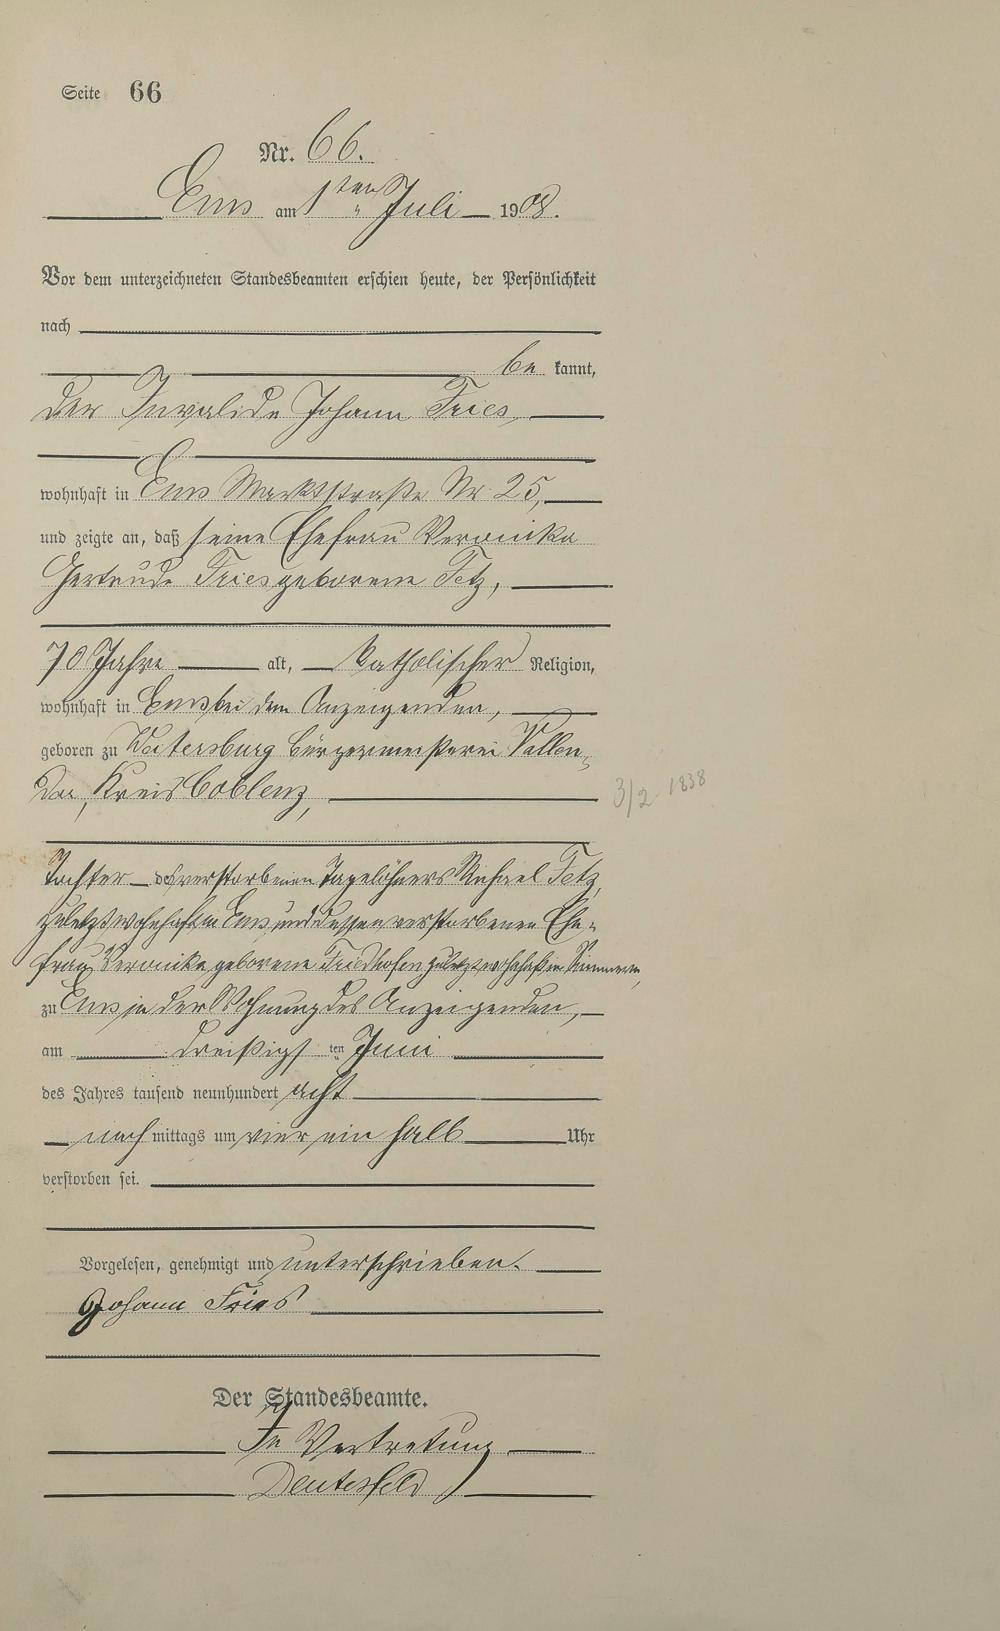 Seite 66
Nr. 66.
Ems am 1ten Juli 1908.
Vor dem unterzeichneten Standesbeamten erschien heute, der Persönlichkeit
nach
be kannt,
der Invalide Johann Fries,
wohnhaft in Ems Marktstraße Nr 25,
und zeigte an, daß seine Ehefrau Veronika
Gertrude Fries geborene Fetz,
70 Jahre alt, katholischer Religion,
wohnhaft in Ems bei dem Anzeigenden,
geboren zu Bürgermeisterei Vallen-
dar, Kreis Coblenz,
3/2 1838
Tochter des verstorbenen Tagelöhners Michael Fetz,
zuletzt wohnhaft in Ems und dessen verstorbenen Ehe-
frau Veronika geborene Friedhofen zuletzt wohnhaft in
zu Ems in der Wohnung des Anzeigenden,
am dreißigsten Juni
des Jahres tausend neunhundert acht
nach mittags um vier ein halb Uhr
verstorben sei.
Vorgelesen, genehmigt und unterschrieben.
Johann Fries
Der Standesbeamte.
In Vertretung